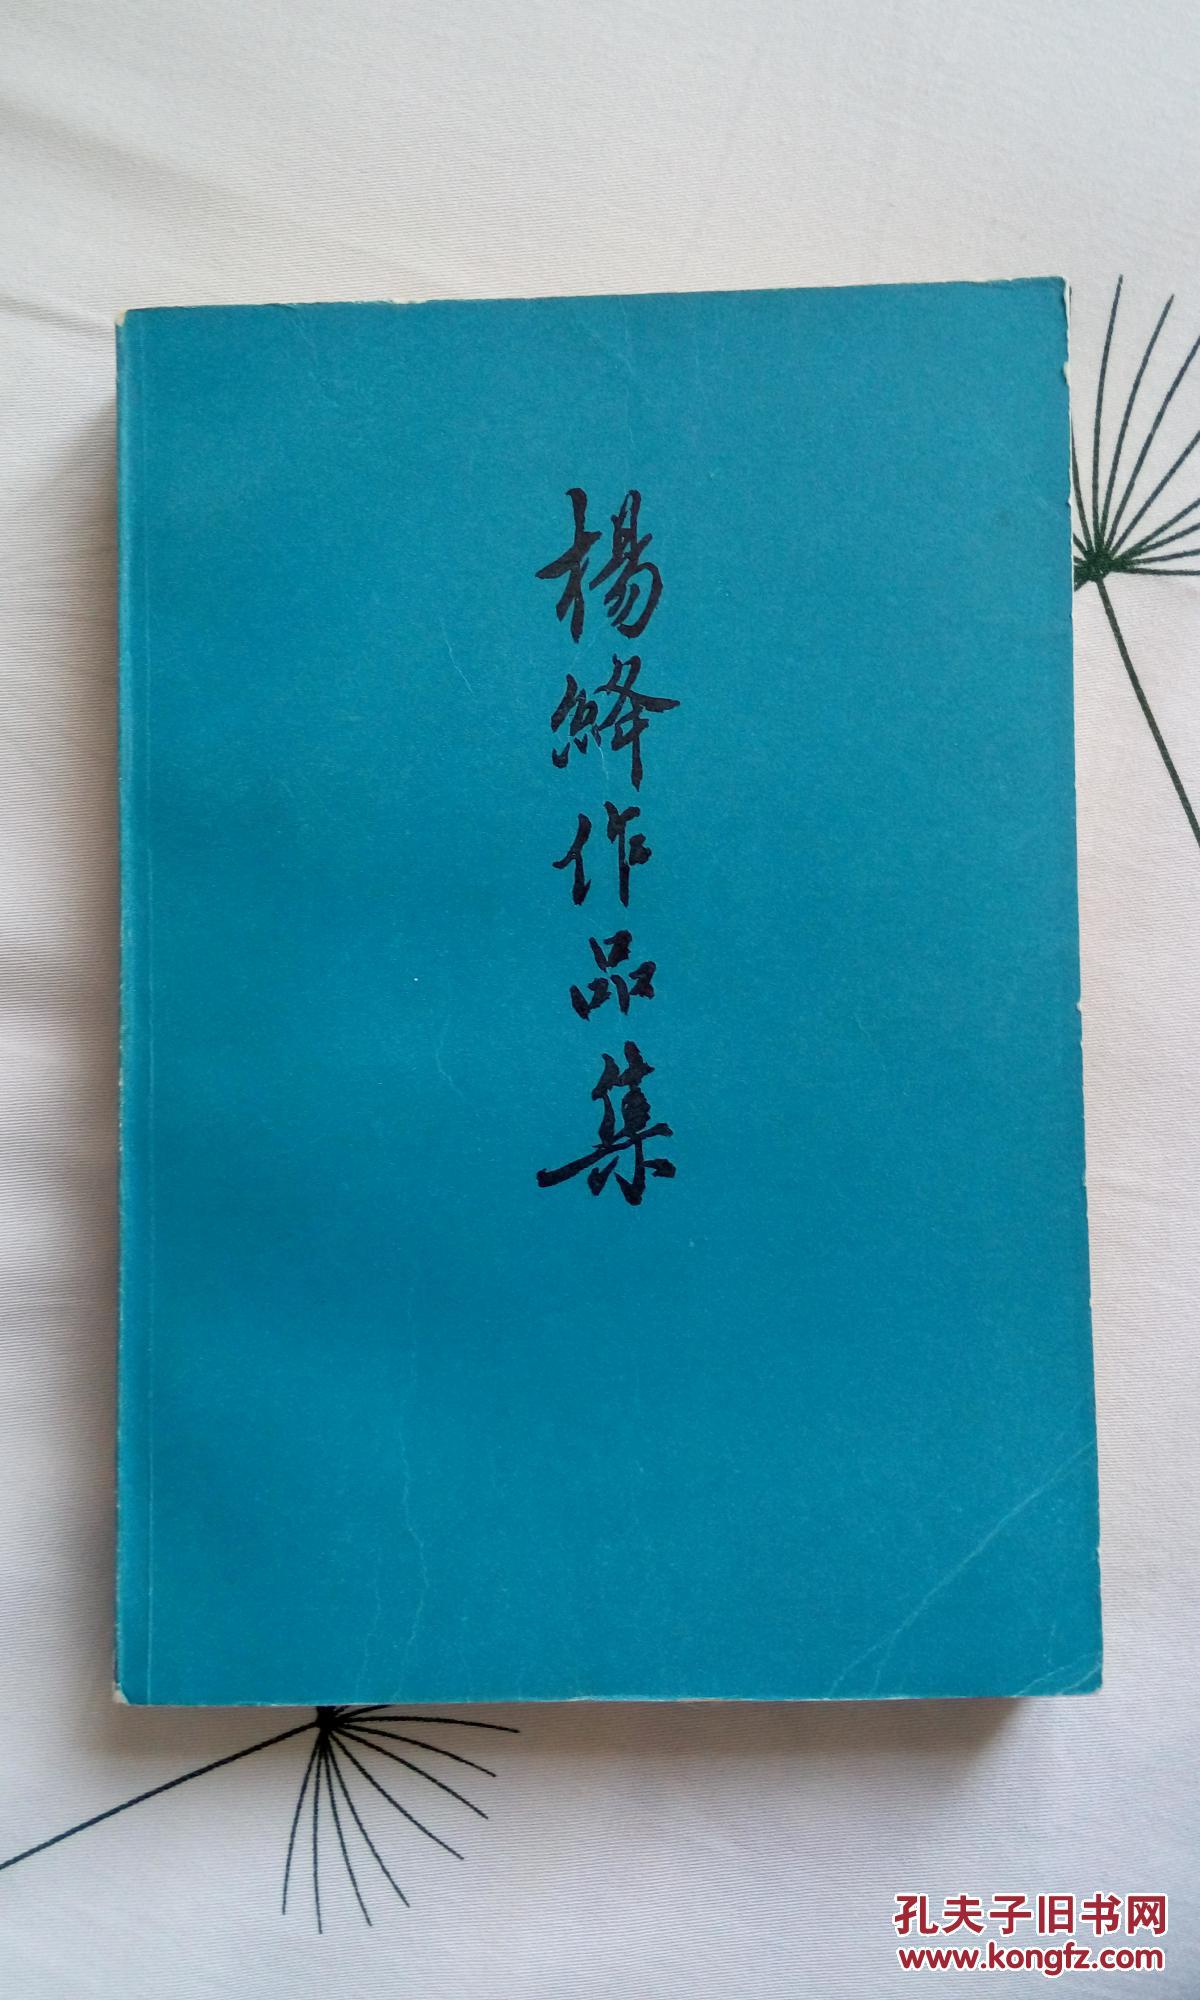 楊絳作品集
孔夫子旧书网
www.kongfz.com